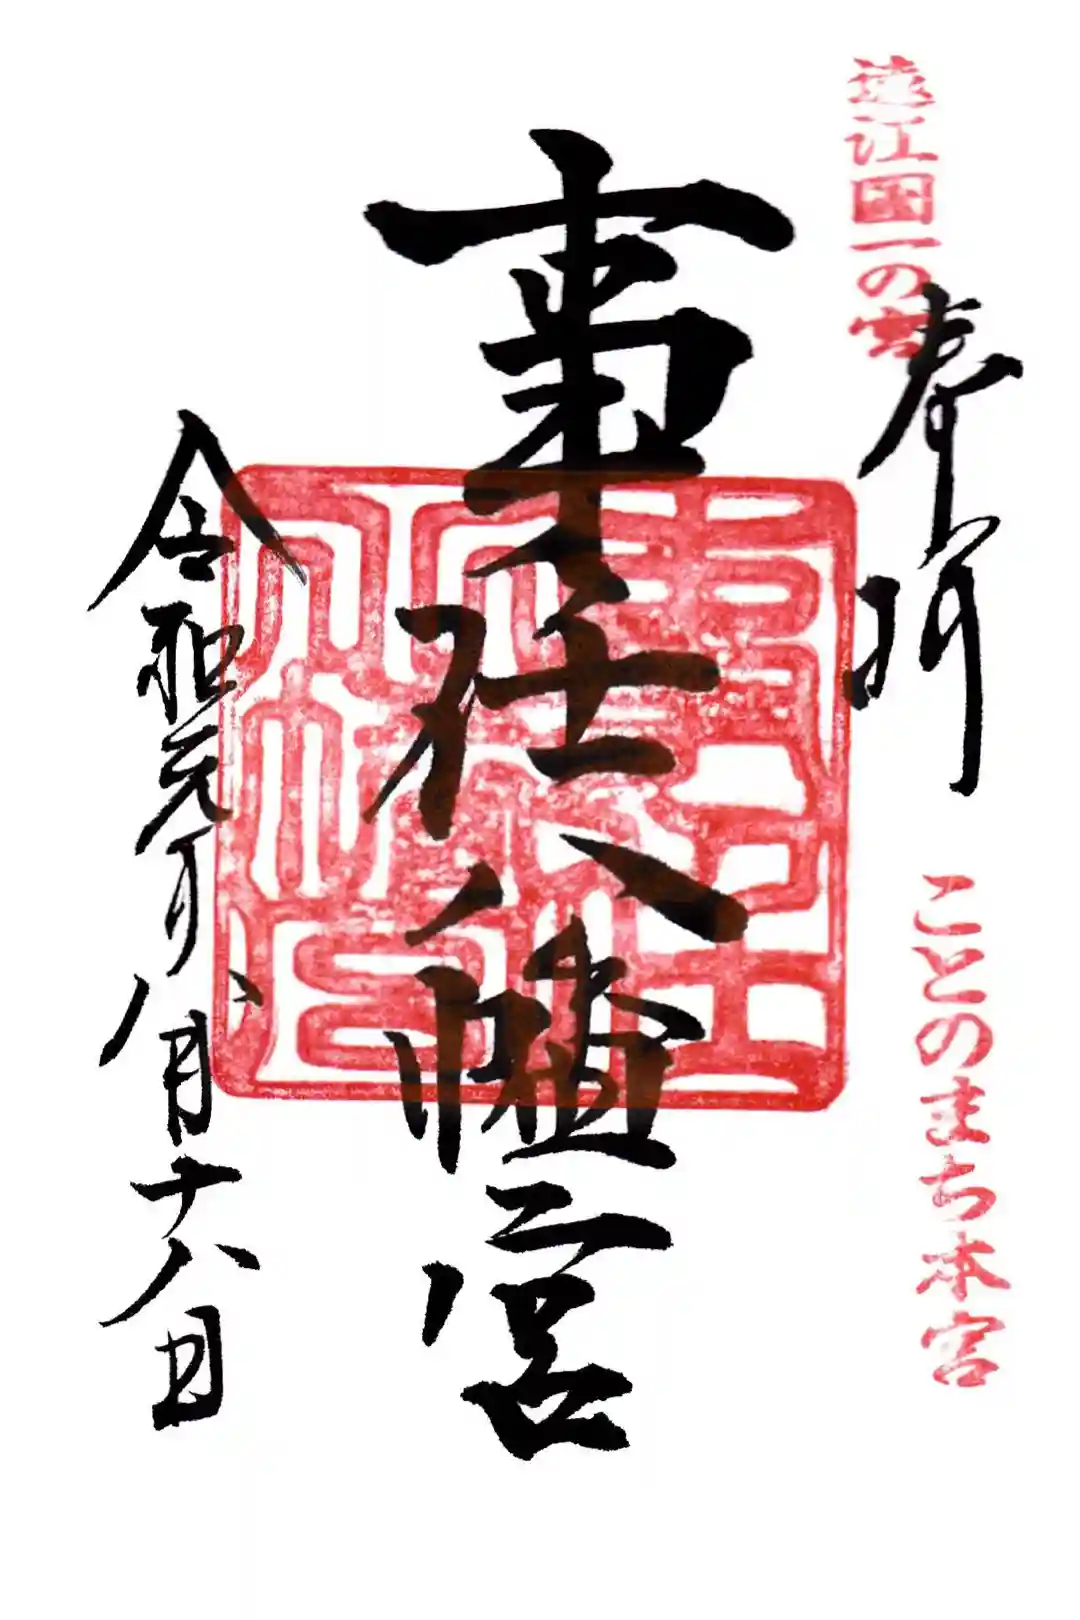 遠江国一の宮
奉拝
ことのまち本宮
事任八幡宮
令和元年八月十八日